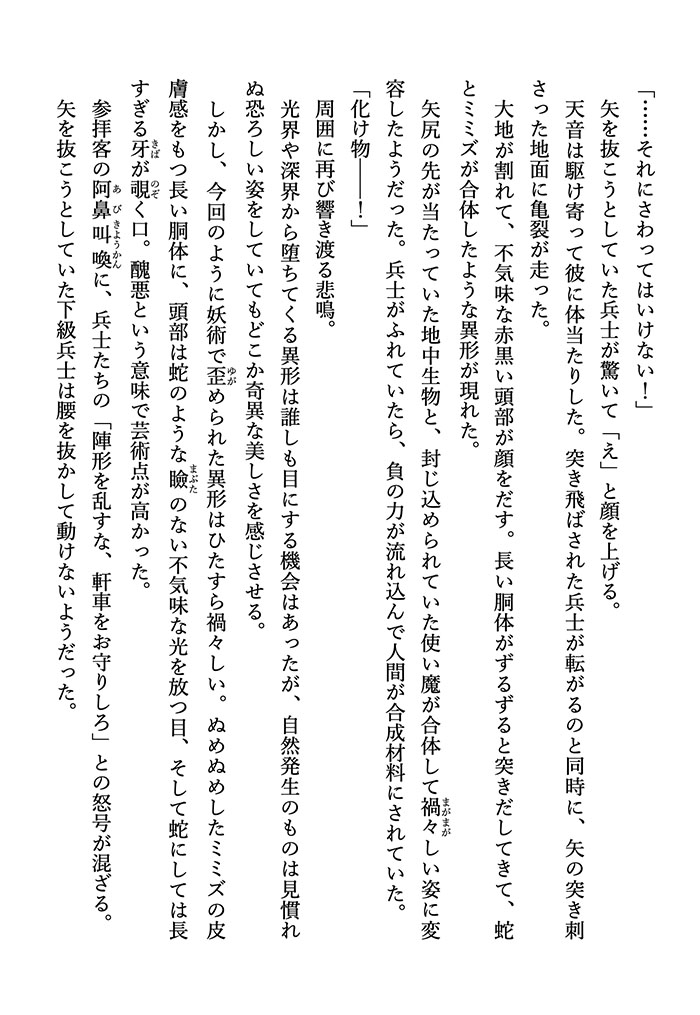 「……それにさわってはいけない！」
矢を抜こうとしていた兵士が驚いて「え」と顔を上げる。
天音は駆け寄って彼に体当たりした。突き飛ばされた兵士が転がるのと同時に、矢の突き刺
さった地面に亀裂が走った。
大地が割れて、不気味な赤黒い頭部が顔をだす。長い胴体がずるずると突きだしてきて、蛇
とミミズが合体したような異形が現れた。
矢尻の先が当たっていた地中生物と、封じ込められていた使い魔が合体して禍々しい姿に変
容したようだった。兵士がふれていたら、負の力が流れ込んで人間が合成材料にされていた。
「化け物――！」
周囲に再び響き渡る悲鳴。
光界や深界から堕ちてくる異形は誰しも目にする機会はあったが、自然発生のものは見慣れ
ぬ恐ろしい姿をしていてもどこか奇異な美しさを感じさせる。
しかし、今回のように妖術で歪められた異形はひたすら禍々しい。ぬめぬめしたミミズの皮
膚感をもつ長い胴体に、頭部は蛇のような瞼のない不気味な光を放つ目、そして蛇にしては長
すぎる牙が覗く口。醜悪という意味で芸術点が高かった。
参拝客の阿鼻叫喚に、兵士たちの「陣形を乱すな、軒車をお守りしろ」との怒号が混ざる。
矢を抜こうとしていた下級兵士は腰を抜かして動けないようだった。